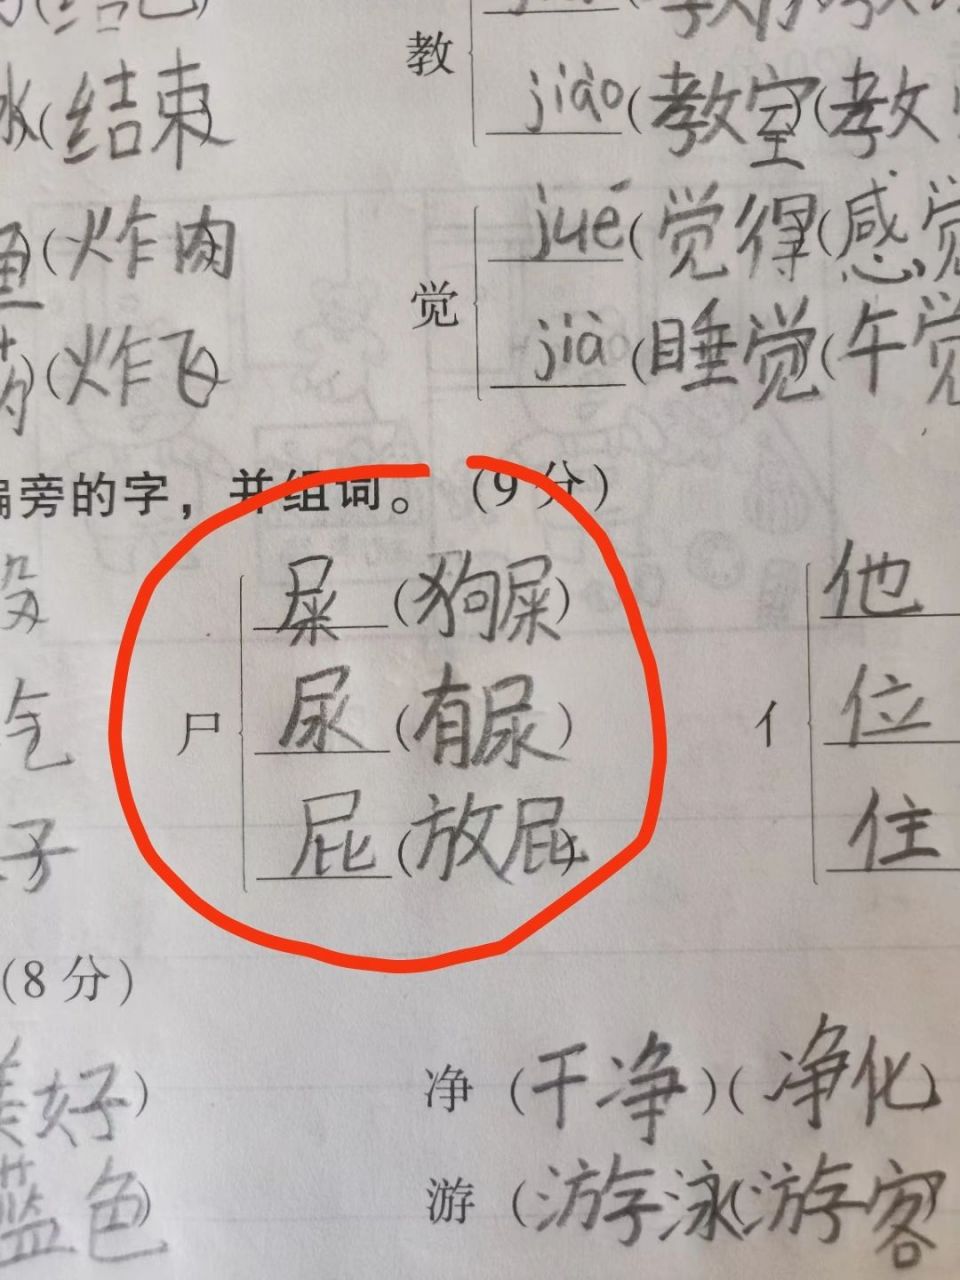 教
冰(结束)
jiào(教室)(教
jué(觉得)(感觉
(炸肉
觉
jià(睡觉(午觉
)(炸飞)
偏旁的字，并组词。(9分)
屎(狗屎)
他
尸 尿(有尿) 亻 位
屁(放屁) 住
子
(8分)
美好) 净(干净)(净化)
蓝色) 游(游泳(游客)